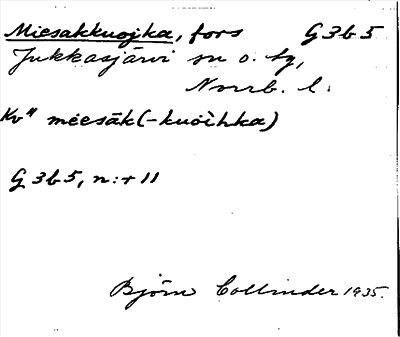 Miesakkuojka, fors G 3 b 5
Jukkasjärvi sn o. tg,
Norrb. l.
Kv" mēesāk(-kuòihka)
G 3 b 5, n:r 11
Björn Collinder 1935.